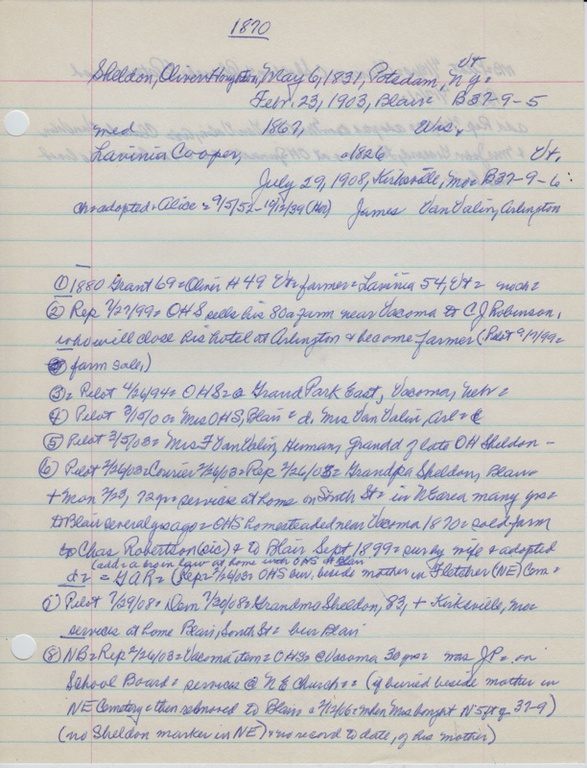 1870
Vt
Sheldon, Oliver Houghton, May 6, 1831, Potsdam, N.Y.
Febr. 23, 1903, Blair B37-9-5
med 1867, Wis.
Lavinia Cooper, 1826 Vt,
July 29, 1908, Kirksville, Mo = B37-9-6
ch = adopted = Alice = 9/5/52 - 10/12/39 (Her) James Van Valin, Arlington
① 1880 Grant 69 = Oliver H 49 Vt = farmer = Lavinia 54, Vt = no ch =
② Rep 7/27/99 = OHS sells his 80a farm near Vacoma to C J Robinson,
who will close his hotel at Arlington & become farmer (Pilot 9/7/99 =
farm sale,)
③ = Pilot 4/26/94 = OHS = @ Grand Park East, Vacoma, Nebr =
④ Pilot 3/15/0 = Mrs OHS, Blair = d. Mrs Van Valin, Arl =
⑤ Pilot 3/5/03 = Mrs F Van Valin, Herman, grandd of late OH Sheldon -
⑥ Pilot 2/26/03 = Courier 2/26/03 = Rep 2/26/03 = Grandpa Sheldon, Blair
+ Mon 2/23, 72 yr = services at home on South St = in NE area many yrs =
to Blair several ys ago = OHS homesteaded near Vacoma 1870 = sold farm
to Chas Robertson (sic) & to Blair Sept 1899 = sur by wife & adopted
(add = a bro in law at home with OHS at Blair
d = = GAR = (Rep = 2/26/03 = OHS bur, beside mother in Fletcher (NE) Cem =
⑦ Pilot 7/29/08 = Dem 7/30/08 = Grandma Sheldon, 83, + Kirksville, Mo =
services at home Blair, South St = bur Blair
⑧ NB = Rep 2/26/03 = Vacoma item = OHS = @ Vacoma 30 yrs = was J.P. = on
School Board = services @ NE Church = = (if buried beside mother in
NE Cemetery = then removed to Blair = 2/12/16 = when Mrs bought N 5 ft of 37-9)
(no Sheldon marker in NE) = no record to date, of his mother)